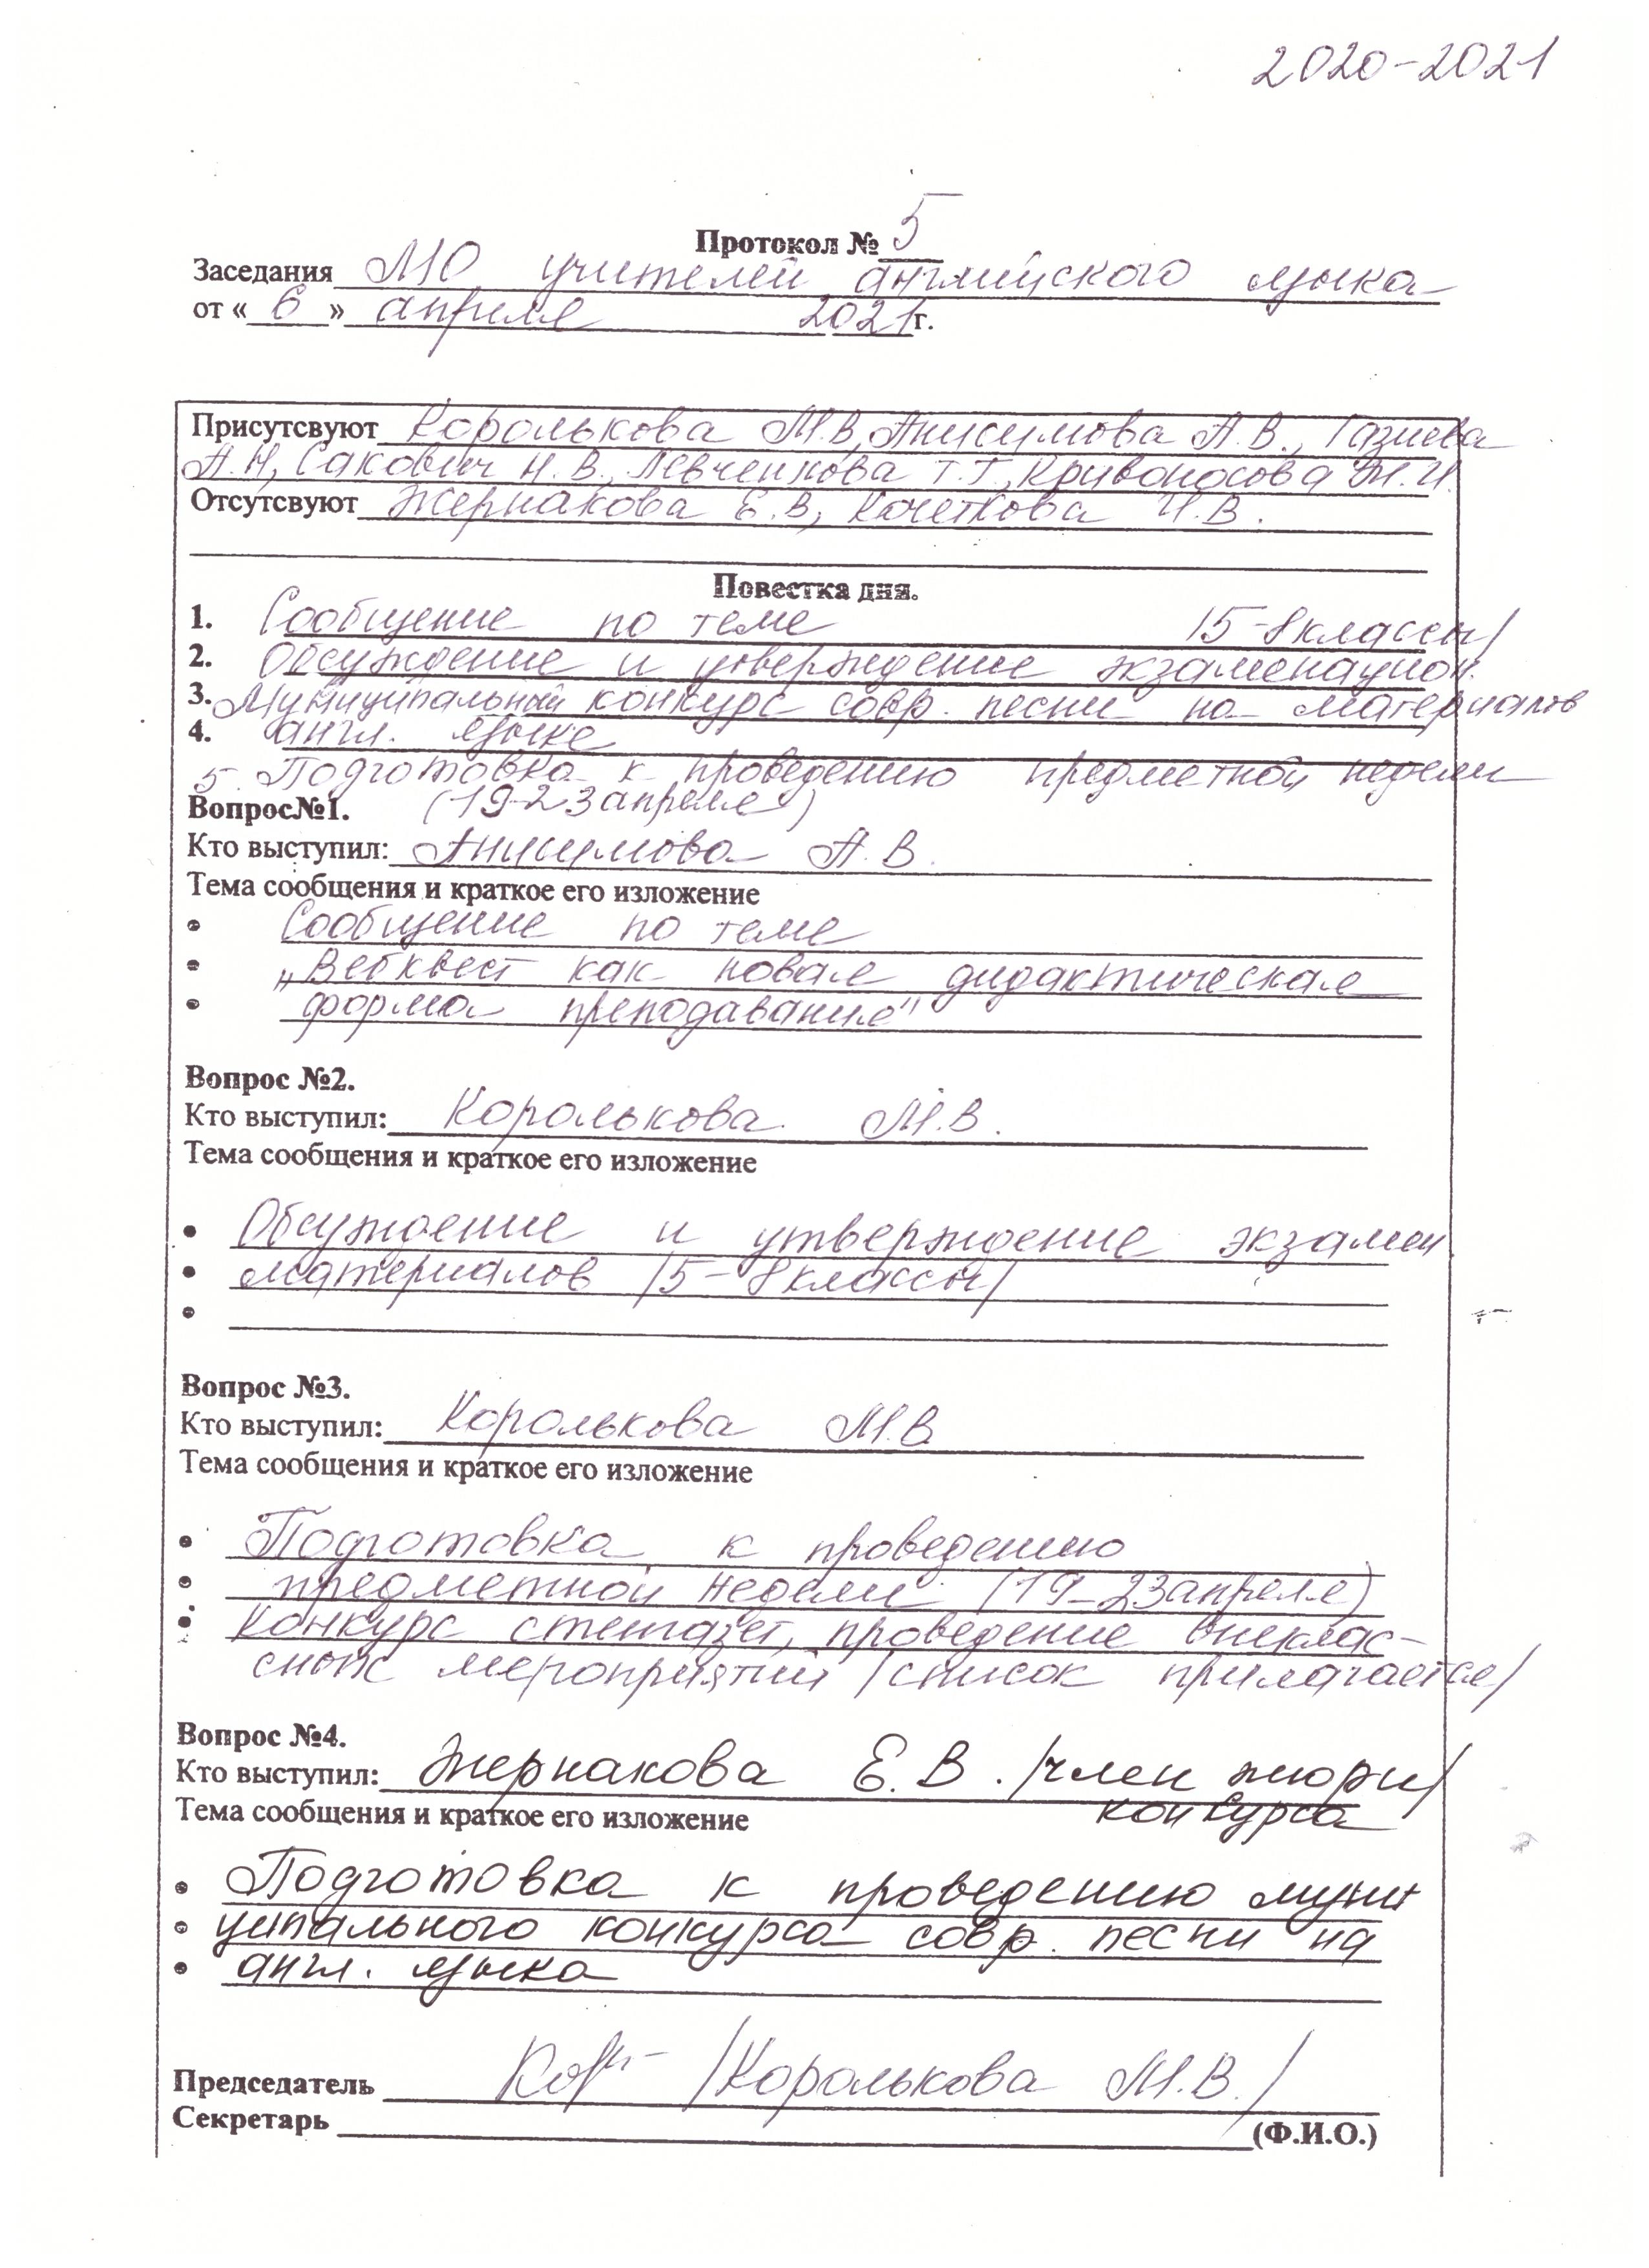 2020-2021
Протокол № 5
Заседания МО учителей английского языка
от « 6 » апреля 2021г.
Присутсвуют Королькова М.В, Анисимова А.В., Газиева
А.Н, Сакович Н.В., Левченкова Т.Г., Кривоносова Ж.И.
Отсутсвуют Жернакова Е.В, Кочеткова И.В.
Повестка дня.
1. Сообщение по теме /5-8 классы/
2. Обсуждение и утверждение экзаменацион.
3. Муниципальный конкурс совр. песни на материалов
4. англ. языке
5. Подготовка к проведению предметной недели
Вопрос№1. (19-23 апреля)
Кто выступил: Анисимова А.В.
Тема сообщения и краткое его изложение
• Сообщение по теме
• „Вебквест как новая дидактическая
• форма преподавания"
Вопрос №2.
Кто выступил: Королькова М.В.
Тема сообщения и краткое его изложение
• Обсуждение и утверждение экзамен
• материалов /5-8 классы/
•
Вопрос №3.
Кто выступил: Королькова М.В
Тема сообщения и краткое его изложение
• Подготовка к проведению
• предметной недели (19-23 апреля)
• конкурс стенгазет, проведение внеклас-
сных мероприятий /список прилагается/
Вопрос №4.
Кто выступил: Жернакова Е.В. /член жюри/
Тема сообщения и краткое его изложение конкурса
• Подготовка к проведению муни
• ципального конкурса совр. песни на
• англ. языка
Председатель /Королькова М.В./
Секретарь (Ф.И.О.)